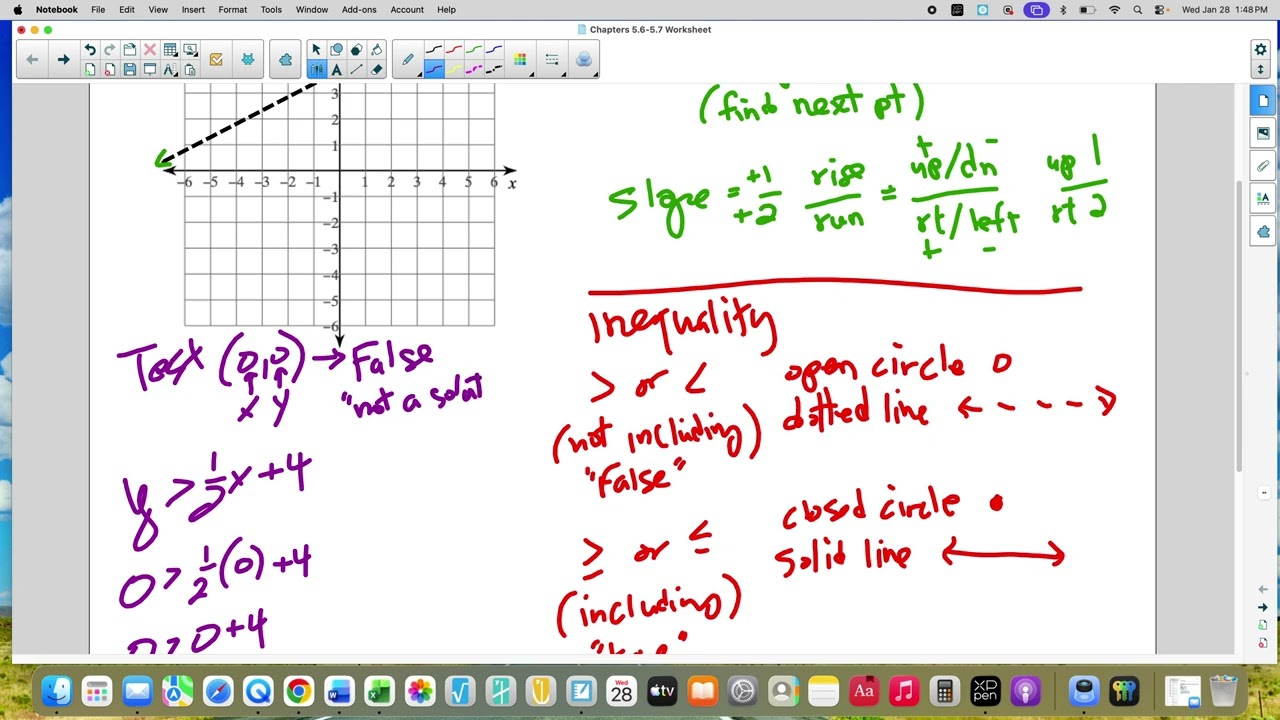 Notebook File Edit View Insert Format Tools Window Add-ons Account Help
Wed Jan 28 1:48 PM
Chapters 5.6-5.7 Worksheet
(find next pt)
slope = +1/+2 rise/run = up/dn / rt/left up 1 / rt 2
+ −
+ −
3
2
1
−6 −5 −4 −3 −2 −1 1 2 3 4 5 6 x
−1
−2
−3
−4
−5
−6
Inequality
> or < open circle o
(not including) dotted line
"False"
≥ or ≤ closed circle
(including) solid line
Test (0,0) → False
x y "not a
y > 1/2 x + 4
0 > 1/2 (0) + 4
0 > 0 + 4
Wed
28
tv
Aa
XP
pen